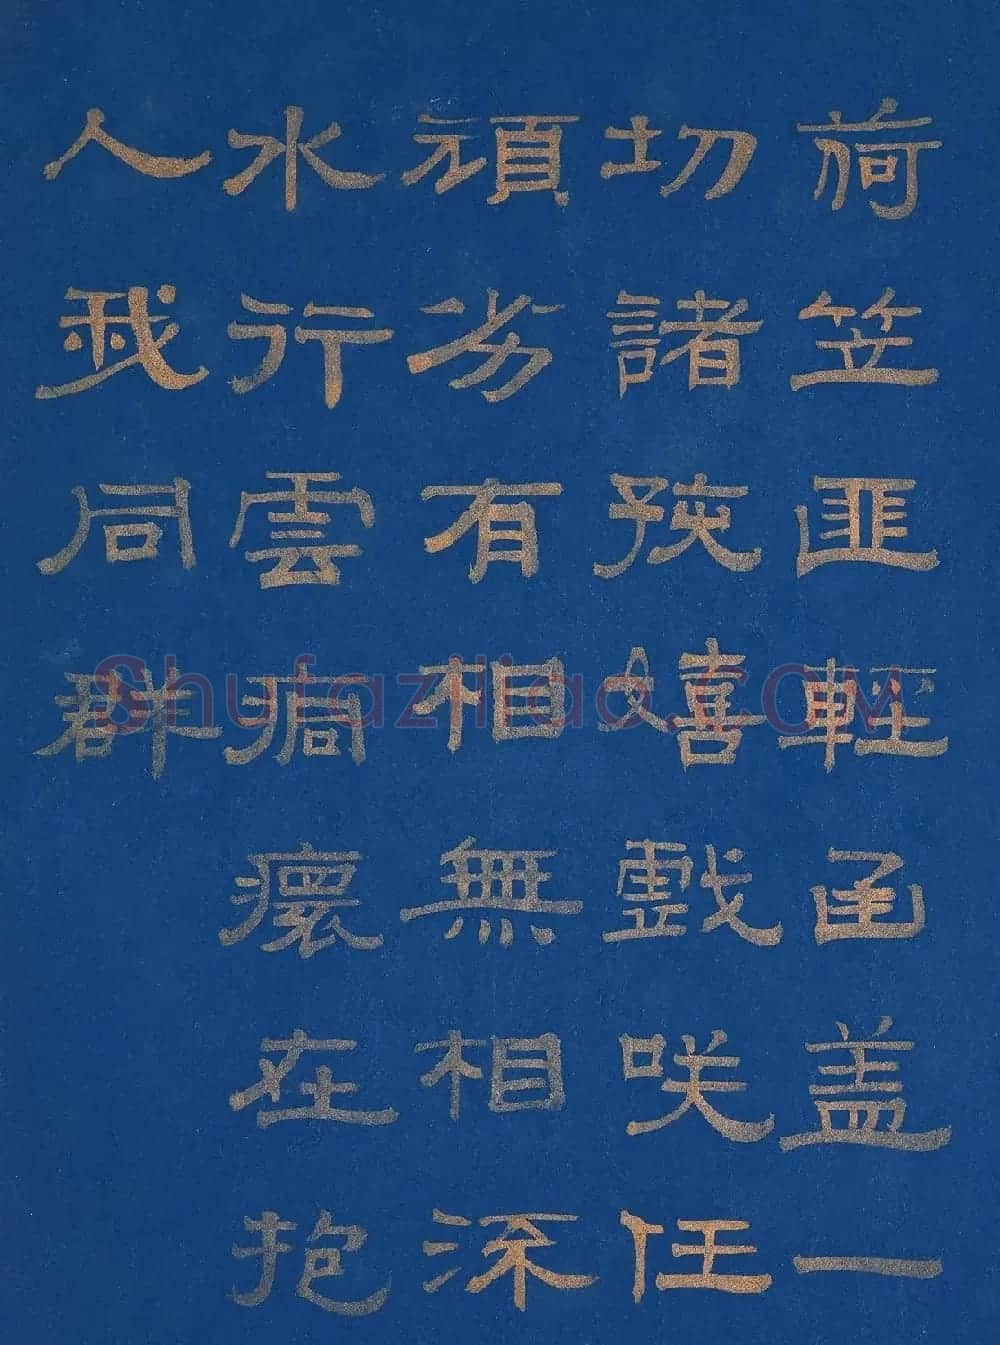 荷笠匪輕函盖一
切諸孩嬉戲咲任
頑劣有相無相㳅
水行雲痌瘝在抱
人我同群
Shufaziliao.COM